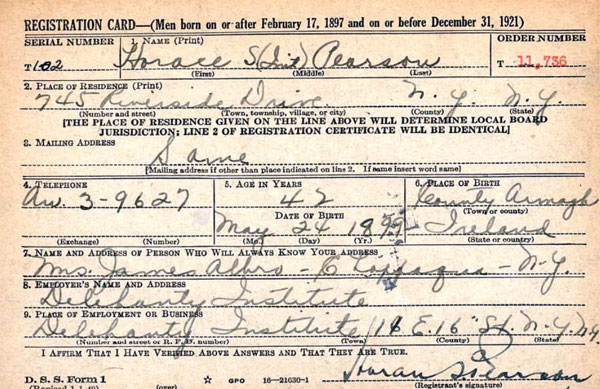 REGISTRATION CARD—(Men born on or after February 17, 1897 and on or before December 31, 1921)
SERIAL NUMBER 1. NAME (Print) ORDER NUMBER
T 102 Horace S (Init) Pearson T 11,736
(First) (Middle) (Last)
2. PLACE OF RESIDENCE (Print)
745 Riverside Drive N.Y. N.Y.
(Number and street) (Town, township, village, or city) (County) (State)
[THE PLACE OF RESIDENCE GIVEN ON THE LINE ABOVE WILL DETERMINE LOCAL BOARD
JURISDICTION; LINE 2 OF REGISTRATION CERTIFICATE WILL BE IDENTICAL]
3. MAILING ADDRESS
Same
[Mailing address if other than place indicated on line 2. If same insert word same]
4. TELEPHONE 5. AGE IN YEARS 6. PLACE OF BIRTH
Au. 3-9627 42 County Armagh
DATE OF BIRTH (Town or county)
May 24 1899 Ireland
(Exchange) (Number) (Mo.) (Day) (Yr.) (State or country)
7. NAME AND ADDRESS OF PERSON WHO WILL ALWAYS KNOW YOUR ADDRESS
Mrs. James - N.Y.
8. EMPLOYER'S NAME AND ADDRESS
Delehanty Institute
9. PLACE OF EMPLOYMENT OR BUSINESS
Delehanty Institute E. 16" St. N.Y. N.Y.
(Number and street or R. F. D. number)
I AFFIRM THAT I HAVE VERIFIED ABOVE ANSWERS AND THAT THEY ARE TRUE.
D. S. S. Form 1 ☆ GPO 16—21630-1 Pearson
(Registrant's signature)